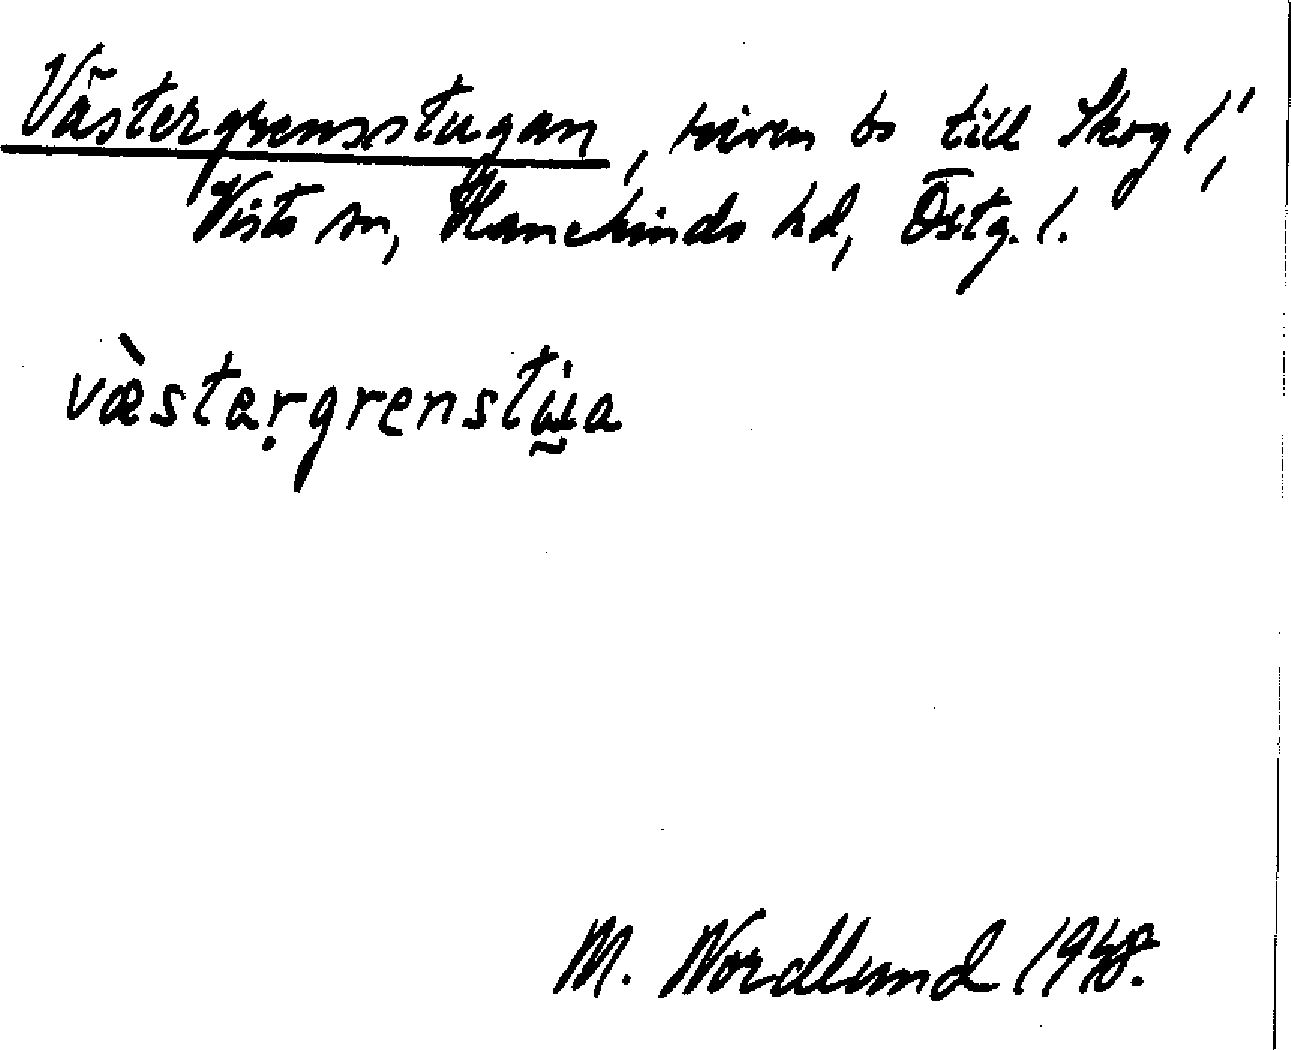 Västergrensstugan, riven bs till Skog 1¹,
Vists sn, Hanekinds hd, Östg. l.
væ̀stergrenstɯa
M. Nordlund 1948.